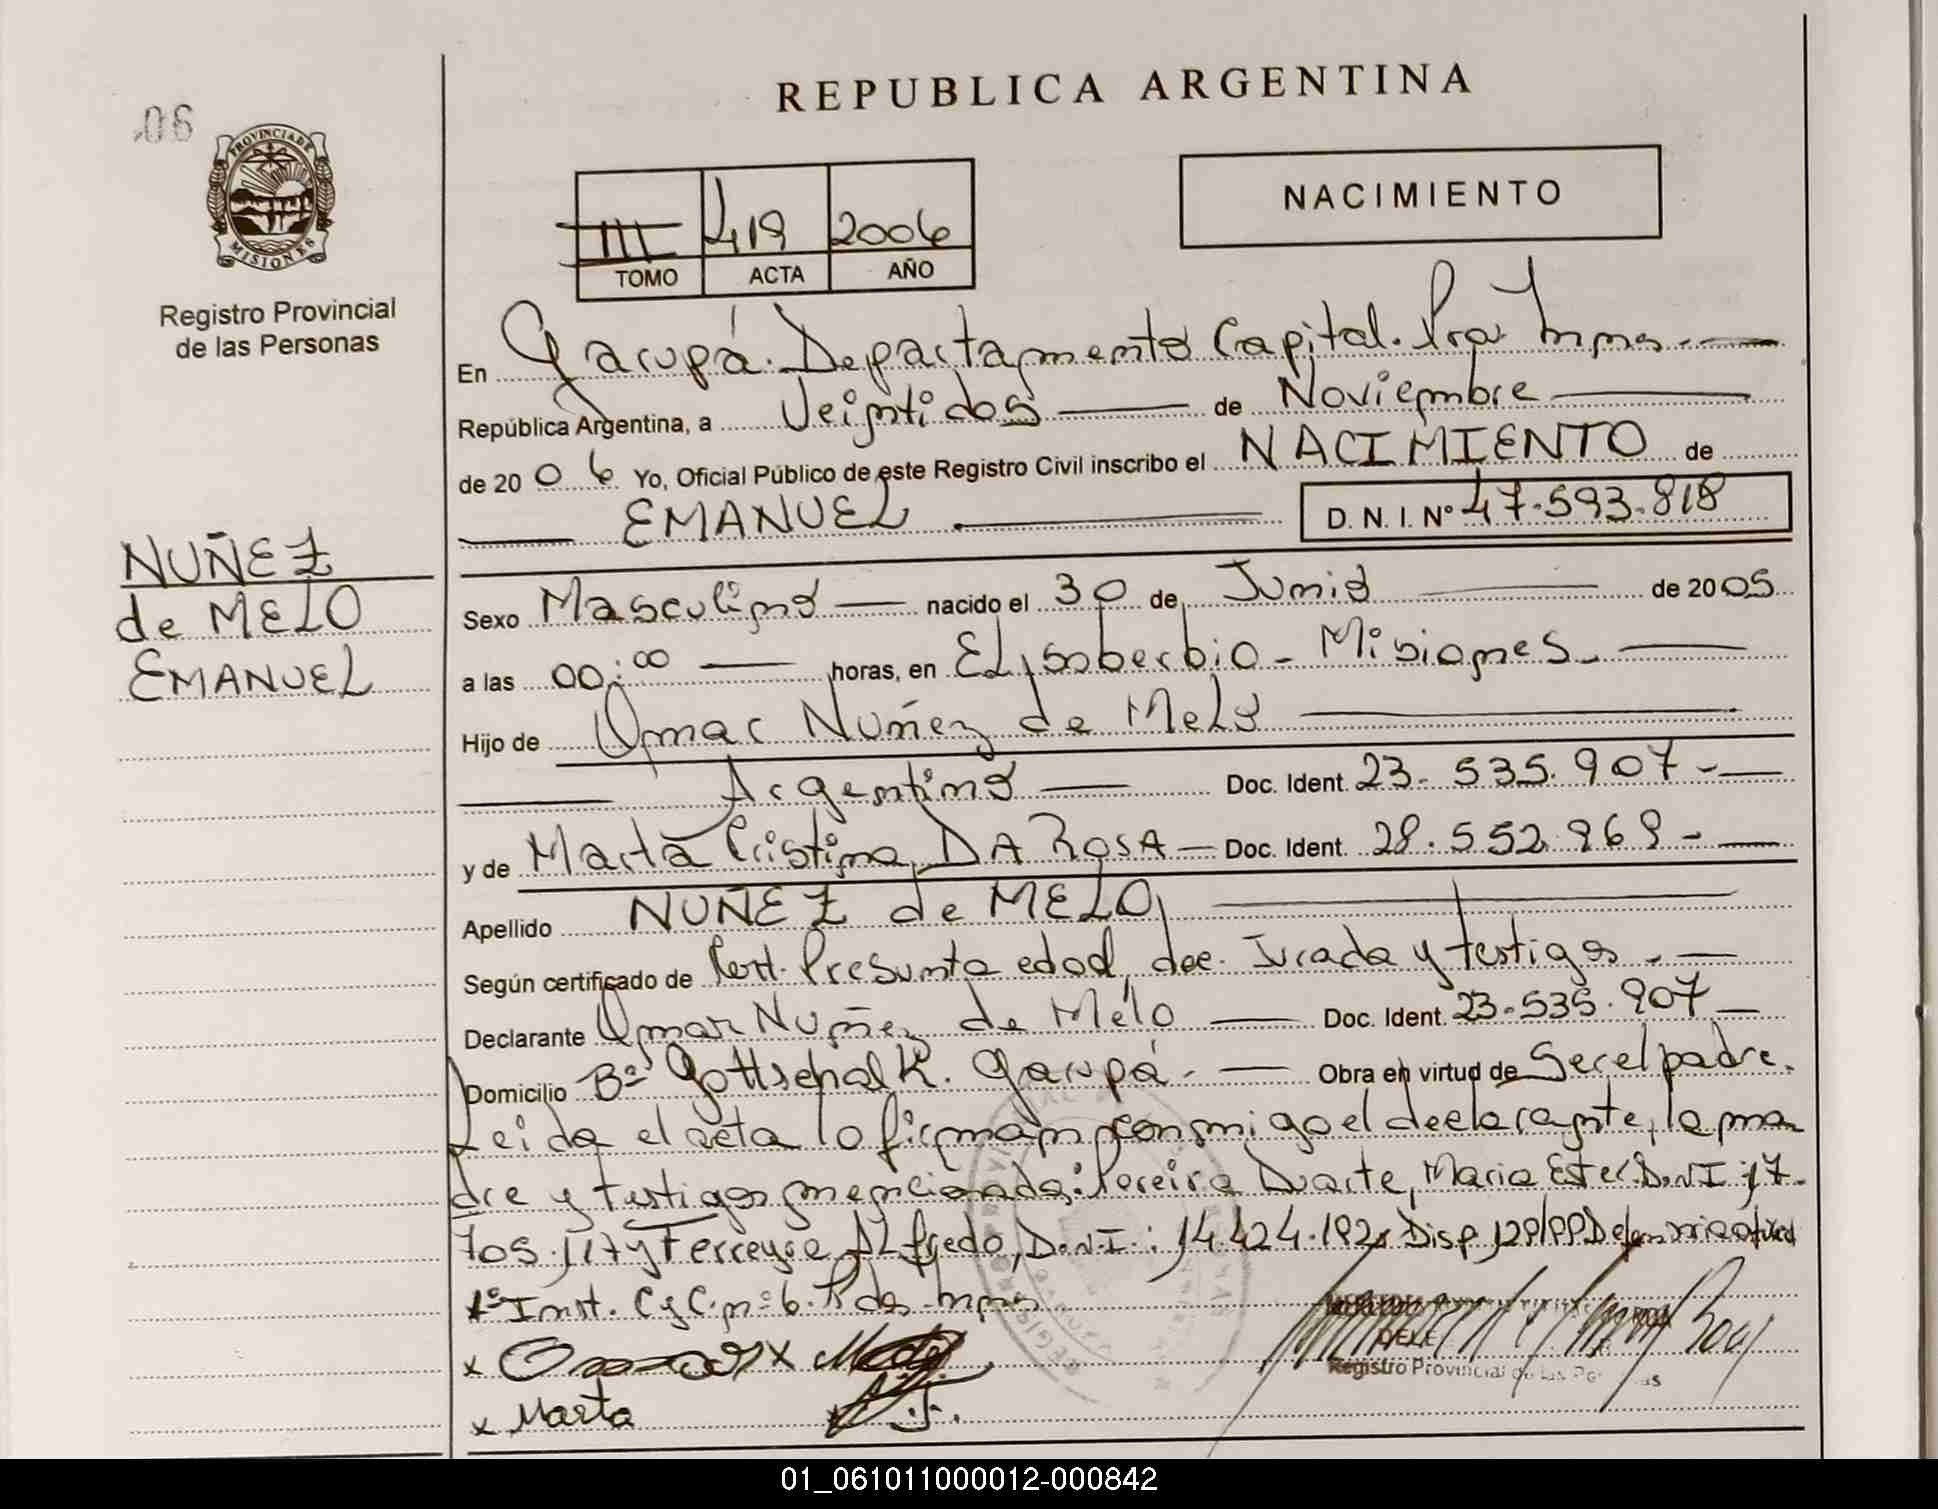 REPUBLICA ARGENTINA
06
PROVINCIA DE
MISIONES
Registro Provincial
de las Personas
NACIMIENTO
III 419 2006
TOMO ACTA AÑO
En Garupá. Departamento Capital. Prov Mnes.
República Argentina, a Veintidos de Noviembre
de 2006 Yo, Oficial Público de este Registro Civil inscribo el NACIMIENTO de
EMANUEL D. N. I. Nº 47.593.818
NUÑEZ
de MELO
EMANUEL
Sexo Masculino nacido el 30 de Junio de 2005
a las 00:00 horas, en EL soberbio - Misiones.
Hijo de Omar Nuñez de Melo
Argentino Doc. Ident. 23. 535. 907 -
y de Marta Cristina DA ROSA - Doc. Ident. 28.552.969 -
Apellido NUÑEZ de MELO
Según certificado de Cert. Presunta edad, dec. Jurada y testigos.
Declarante Omar Nuñez de Melo Doc. Ident. 23.535.907
Domicilio Bº Gottschalk. Garupá. Obra en virtud de Ser el padre.
Leida el acta lo firman conmigo el declarante, la ma
dre y testigos mencionados: Pereira Duarte, Maria Ester D.N.I 17.
705.117 y Ferreyra ALfredo, D.N.I.: 14.424.192, Disp 129/99
1º Inst. C y C. nº 6. Pdas. Mnes
Marta
Registro Provincial de las Personas
01_061011000012-000842